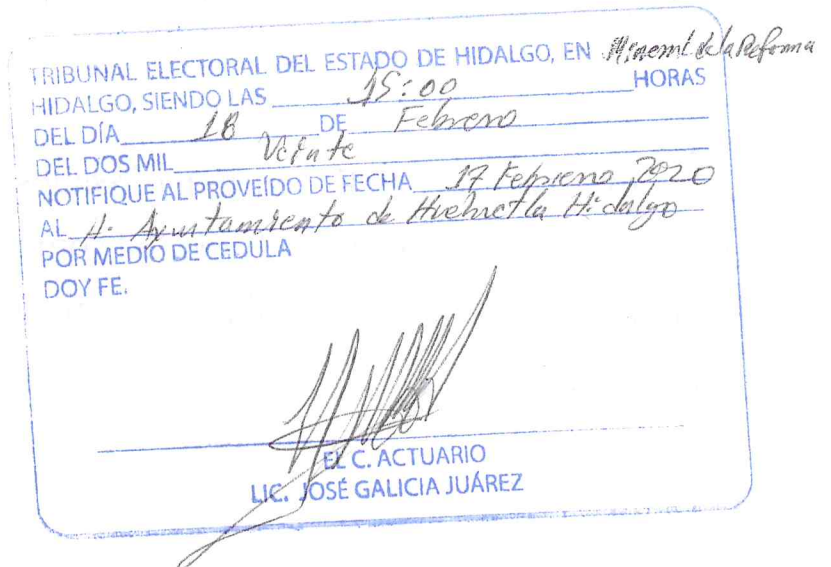 TRIBUNAL ELECTORAL DEL ESTADO DE HIDALGO, EN Mineral de la Reforma
HIDALGO, SIENDO LAS 15:00 HORAS
DEL DÍA 18 DE Febrero
DEL DOS MIL Veinte
NOTIFIQUE AL PROVEÍDO DE FECHA 17 Febrero 2020
AL H. Ayuntamiento de Huehuetla Hidalgo
POR MEDIO DE CEDULA
DOY FE.
EL C. ACTUARIO
LIC. JOSÉ GALICIA JUÁREZ